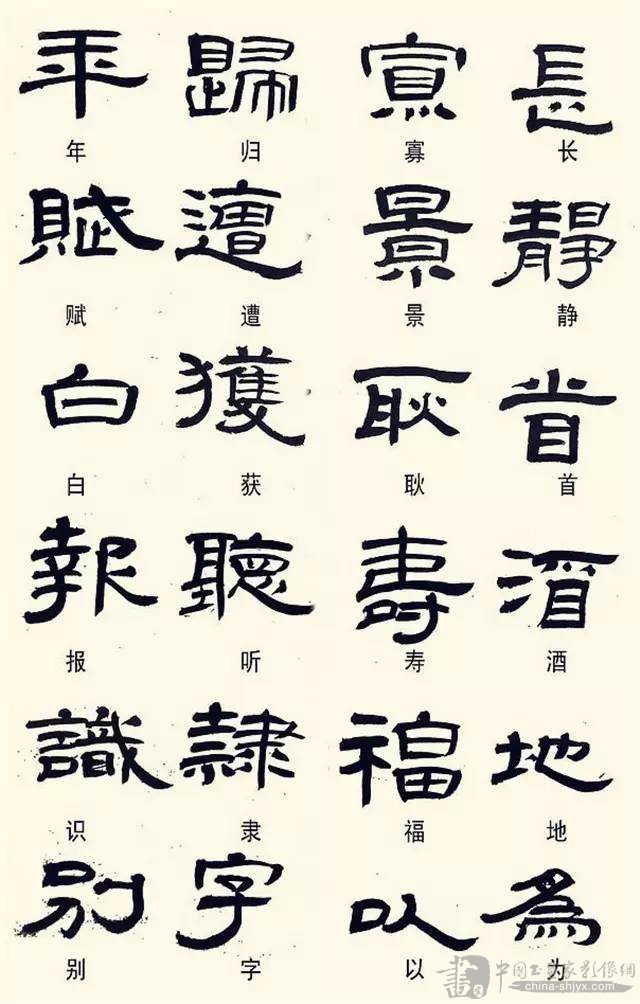 年 歸 寡 長
年 归 寡 长
賦 遭 景 靜
赋 遭 景 静
白 獲 耿 首
白 获 耿 首
報 聽 壽 酒
报 听 寿 酒
識 隸 福 地
识 隶 福 地
別 字 以 為
别 字 以 为
書 中国书画家影像網
china-shjyx.com